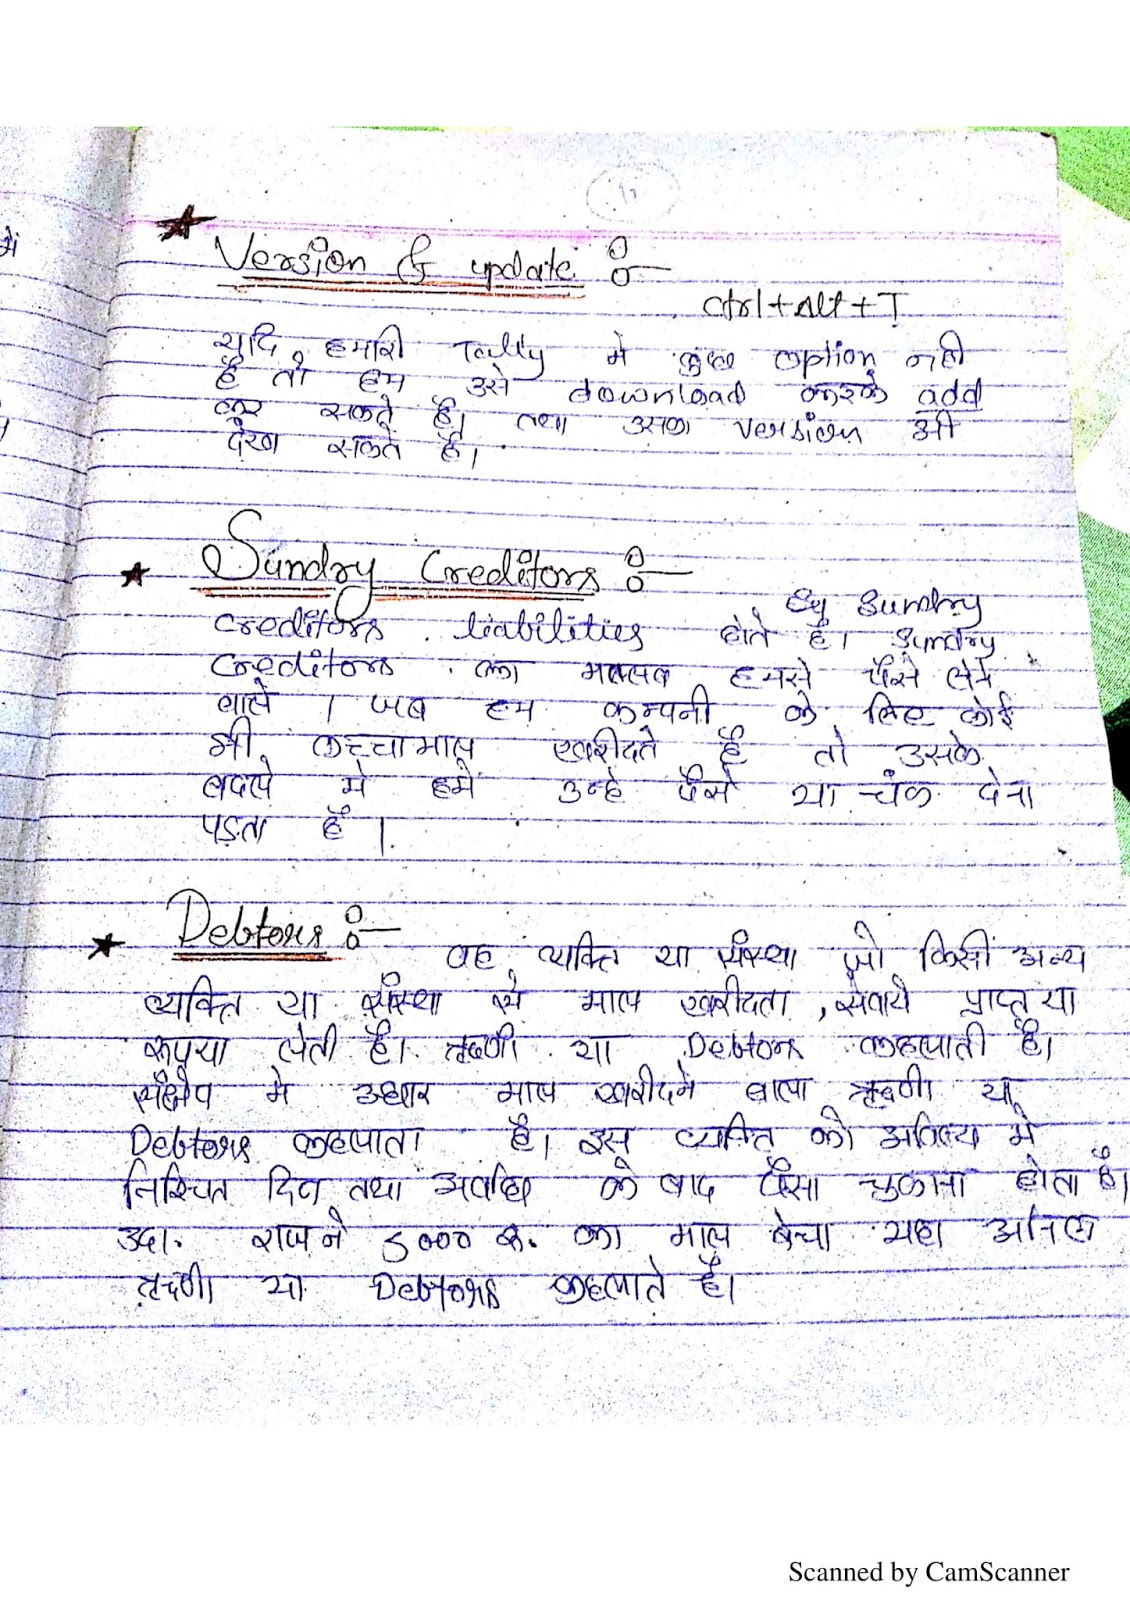 में
11
Version & update :-
Ctrl+Alt+T
यदि हमारी Tally मे कुछ option नही
है तो हम उसे download करके add
कर सकते है। तथा उसका version भी
देख सकते है।
Sundry Creditors :-
By Sundry
Creditors liabilities होते है। Sundry
Creditors का मतलब हमसे पैसे लेने
वाले । जब हम कम्पनी के लिए कोई
भी कच्चामाल खरीदते है तो उसके
बदले मे हमे उन्हे पैसे या चेक देना
पड़ता है।
Debtors :- वह व्यक्ति या संस्था जो किसी अन्य
व्यक्ति या संस्था से माल खरीदता, सेवाये प्राप्त या
रूपया लेती है। ऋणी या Debtors कहलाती है।
संक्षेप मे उधार माल खरीदने वाला ऋणी या
Debtors कहलाता है। इस व्यक्ति को भविष्य मे
निश्चित दिन तथा अवधि के बाद पैसा चुकाना होता है।
उदा. राज ने 5000 रू. का माल बेचा यहा अनिल
ऋणी या Debtors कहलाते है।
Scanned by CamScanner